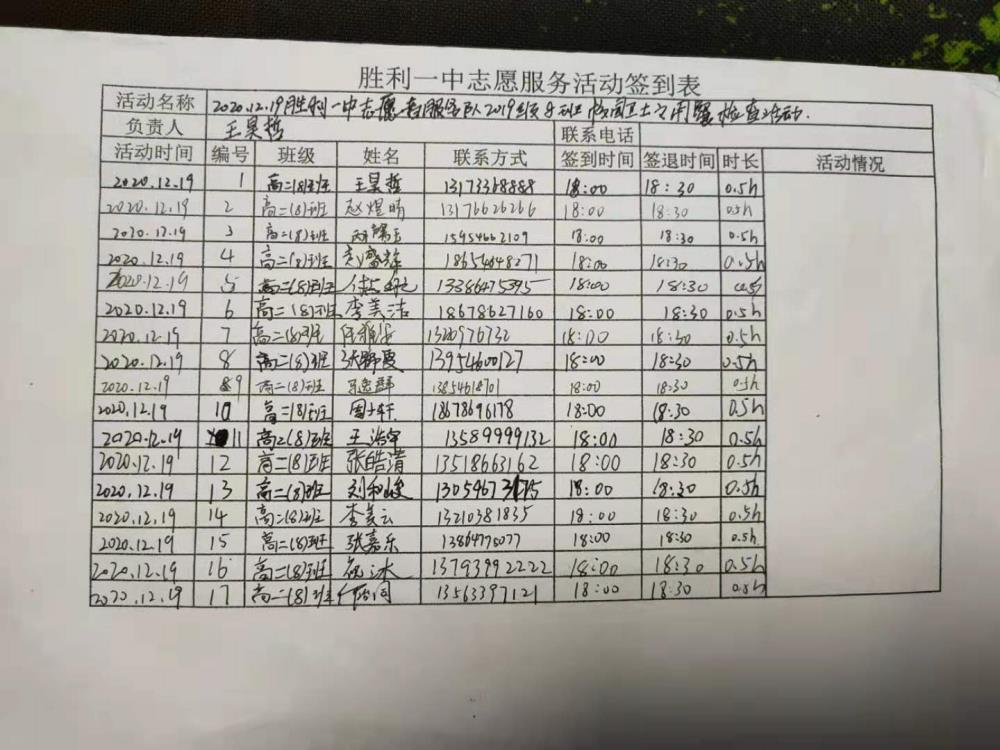 胜利一中志愿服务活动签到表
活动名称 2020.12.19胜利一中志愿者服务队2019级8班 活动.
负责人 王昊哲 联系电话
活动时间 编号 班级 姓名 联系方式 签到时间 签退时间 时长 活动情况
2020.12.19 1 高二(8)班 王昊哲 13173368888 18:00 18:30 0.5h
2020.12.19 2 高二(8)班 赵煜晴 13176626266 18:00 18:30 0.5h
2020.12.19 3 高二(8)班 15954662109 18:00 18:30 0.5h
2020.12.19 4 高二(8)班 18654648271 18:00 18:30 0.5h
2020.12.19 5 高二(8)班 13386475395 18:00 18:30
2020.12.19 6 高二(8)班 李美洁 18678627160 18:00 18:30 0.5h
2020.12.19 7 高二(8)班 18:00 18:30 0.5h
2020.12.19 8 高二(8)班 13954600127 18:00 18:30 0.5h
2020.12.19 9 高二(8)班 18:00 18:30 0.5h
2020.12.19 10 高二(8)班 周士轩 18678696178 18:00 18:30 0.5h
2020.12.19 11 高二(8)班 王浩宇 13589999132 18:00 18:30 0.5h
2020.12.19 12 高二(8)班 张皓清 13518663162 18:00 18:30 0.5h
2020.12.19 13 高二(8)班 刘和峻 18:00 18:30 0.5h
2020.12.19 14 高二(8)班 李美云 13210381835 18:00 18:30 0.5h
2020.12.19 15 高二(8)班 张嘉乐 13864775077 18:00 18:30 0.5h
2020.12.19 16 高二(8)班 13793992222 18:00 18:30 0.5h
2020.12.19 17 高二(8)班 13563397121 18:00 18:30 0.5h